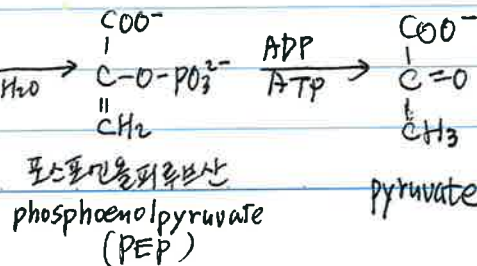 COO⁻
H₂O
C-O-PO₃²⁻
CH₂
ADP
ATP
COO⁻
C=O
CH₃
포스포엔올피루브산
phosphoenolpyruvate
(PEP)
pyruvate